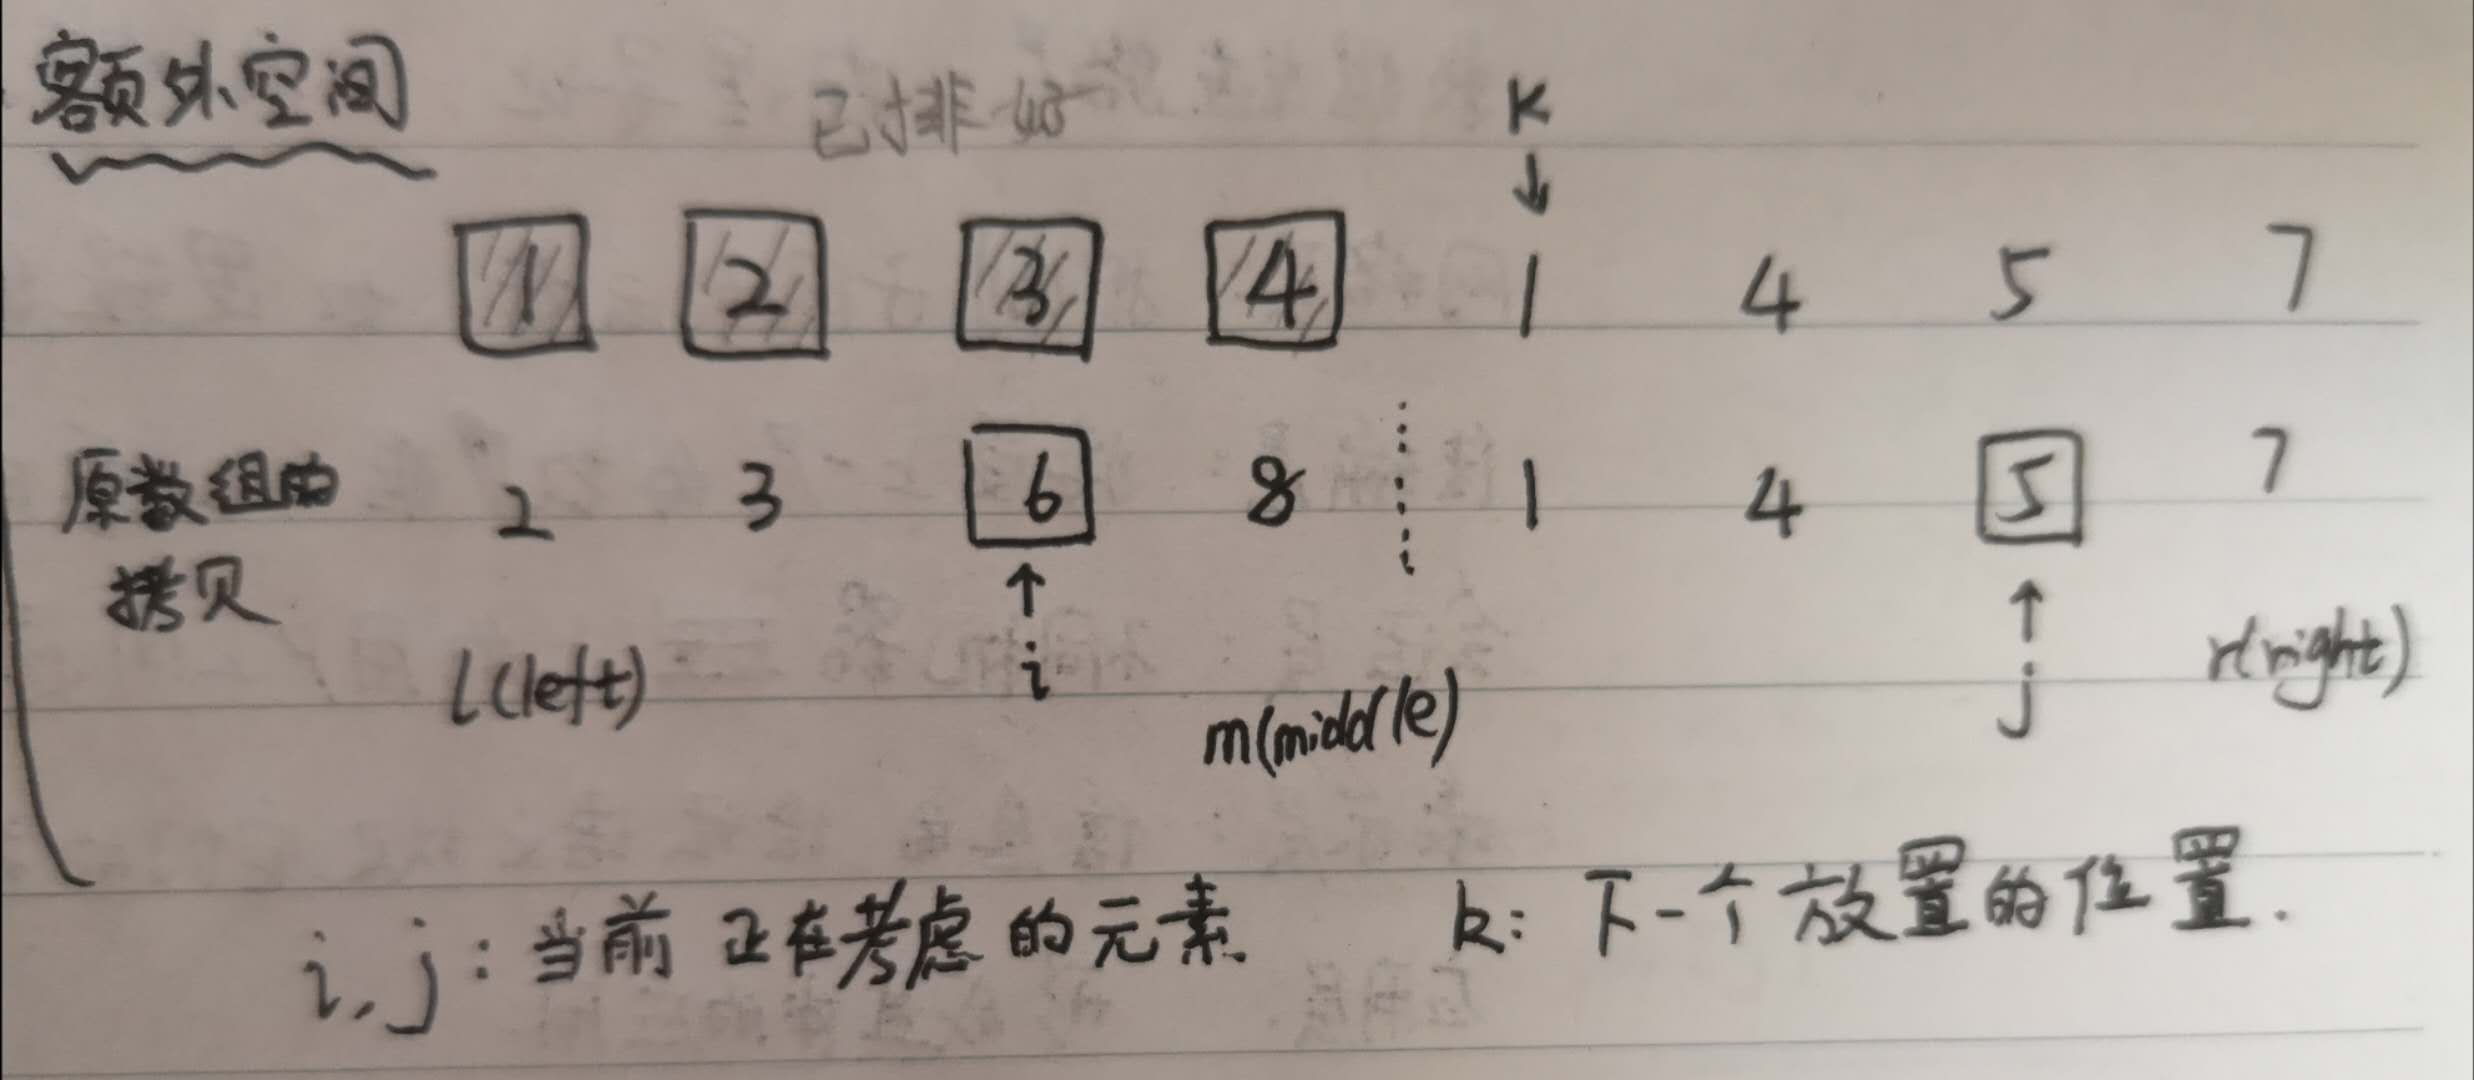 额外空间
已排好
K
↓
1 2 3 4 1 4 5 7
原数组的
拷贝
2 3 6 8 1 4 5 7
↑ ↑
l(left) i m(middle) j r(right)
i, j: 当前正在考虑的元素 k: 下一个放置的位置.